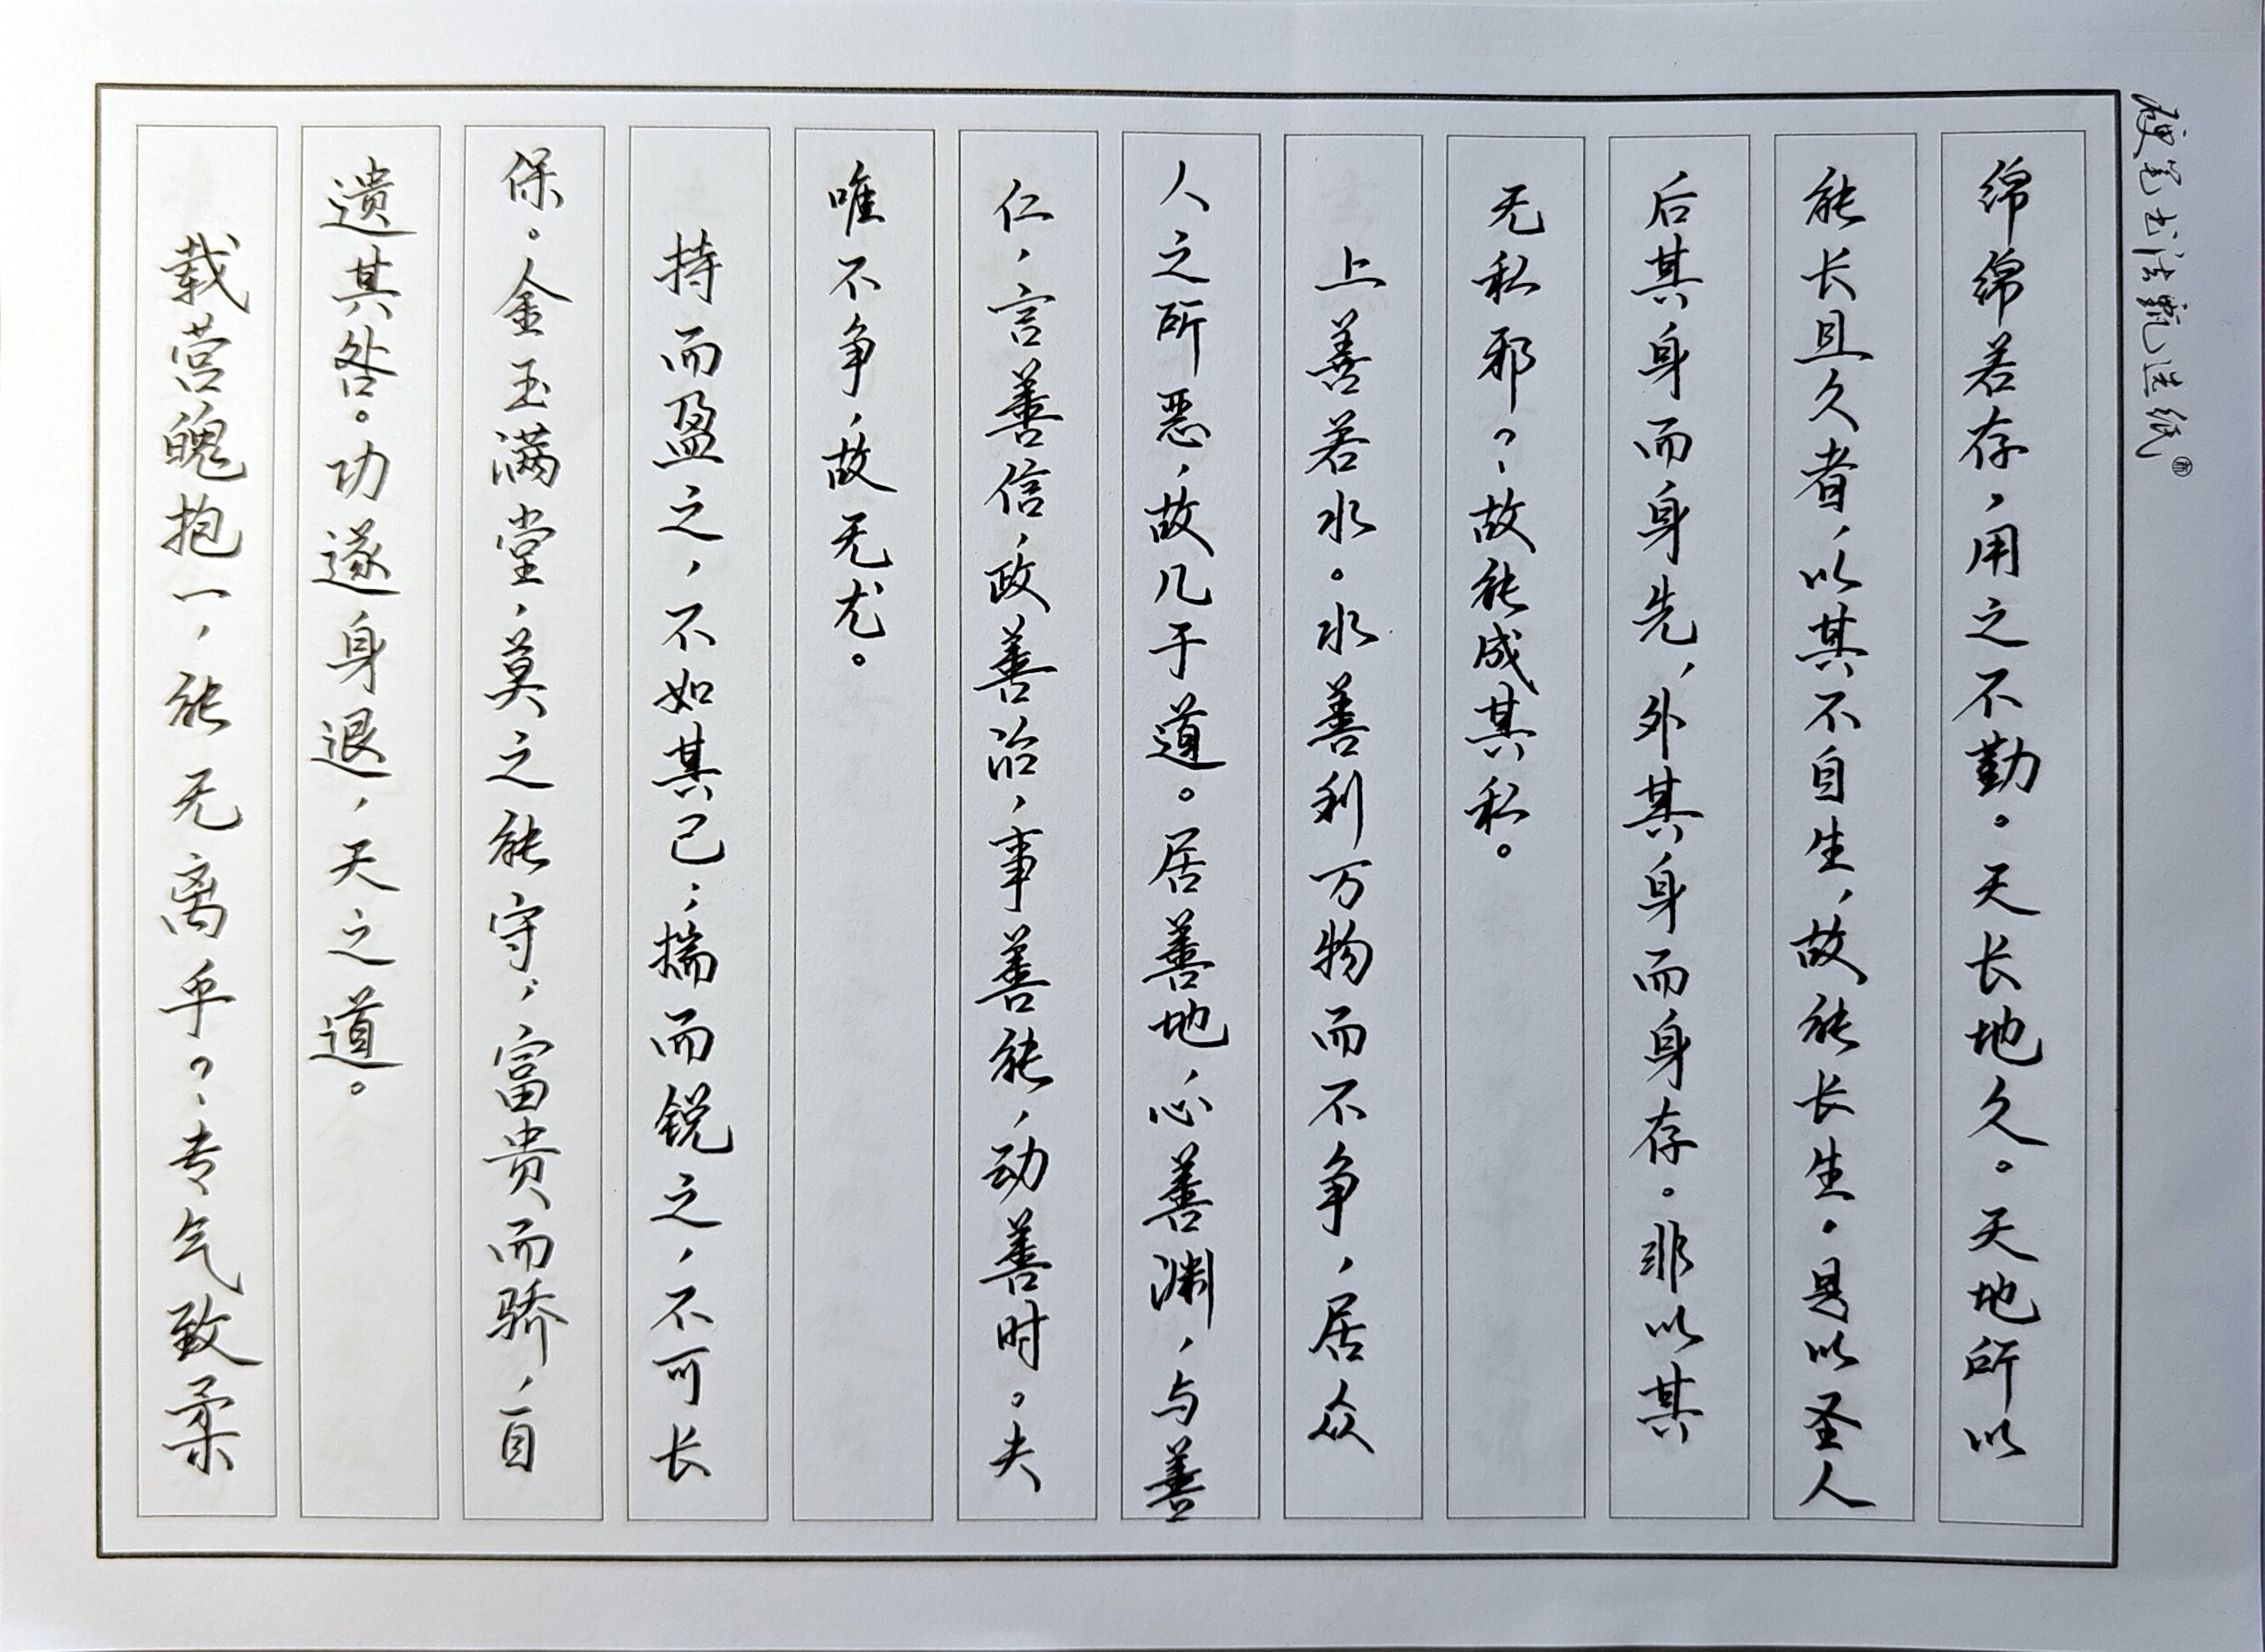 硬笔书法甄选纸
绵绵若存，用之不勤。天长地久。天地所以
能长且久者，以其不自生，故能长生。是以圣人
后其身而身先，外其身而身存。非以其
无私邪？故能成其私。
上善若水。水善利万物而不争，居众
人之所恶，故几于道。居善地，心善渊，与善
仁，言善信，政善治，事善能，动善时。夫
唯不争，故无尤。
持而盈之，不如其己；揣而锐之，不可长
保。金玉满堂，莫之能守，富贵而骄，自
遗其咎。功遂身退，天之道。
载营魄抱一，能无离乎？专气致柔